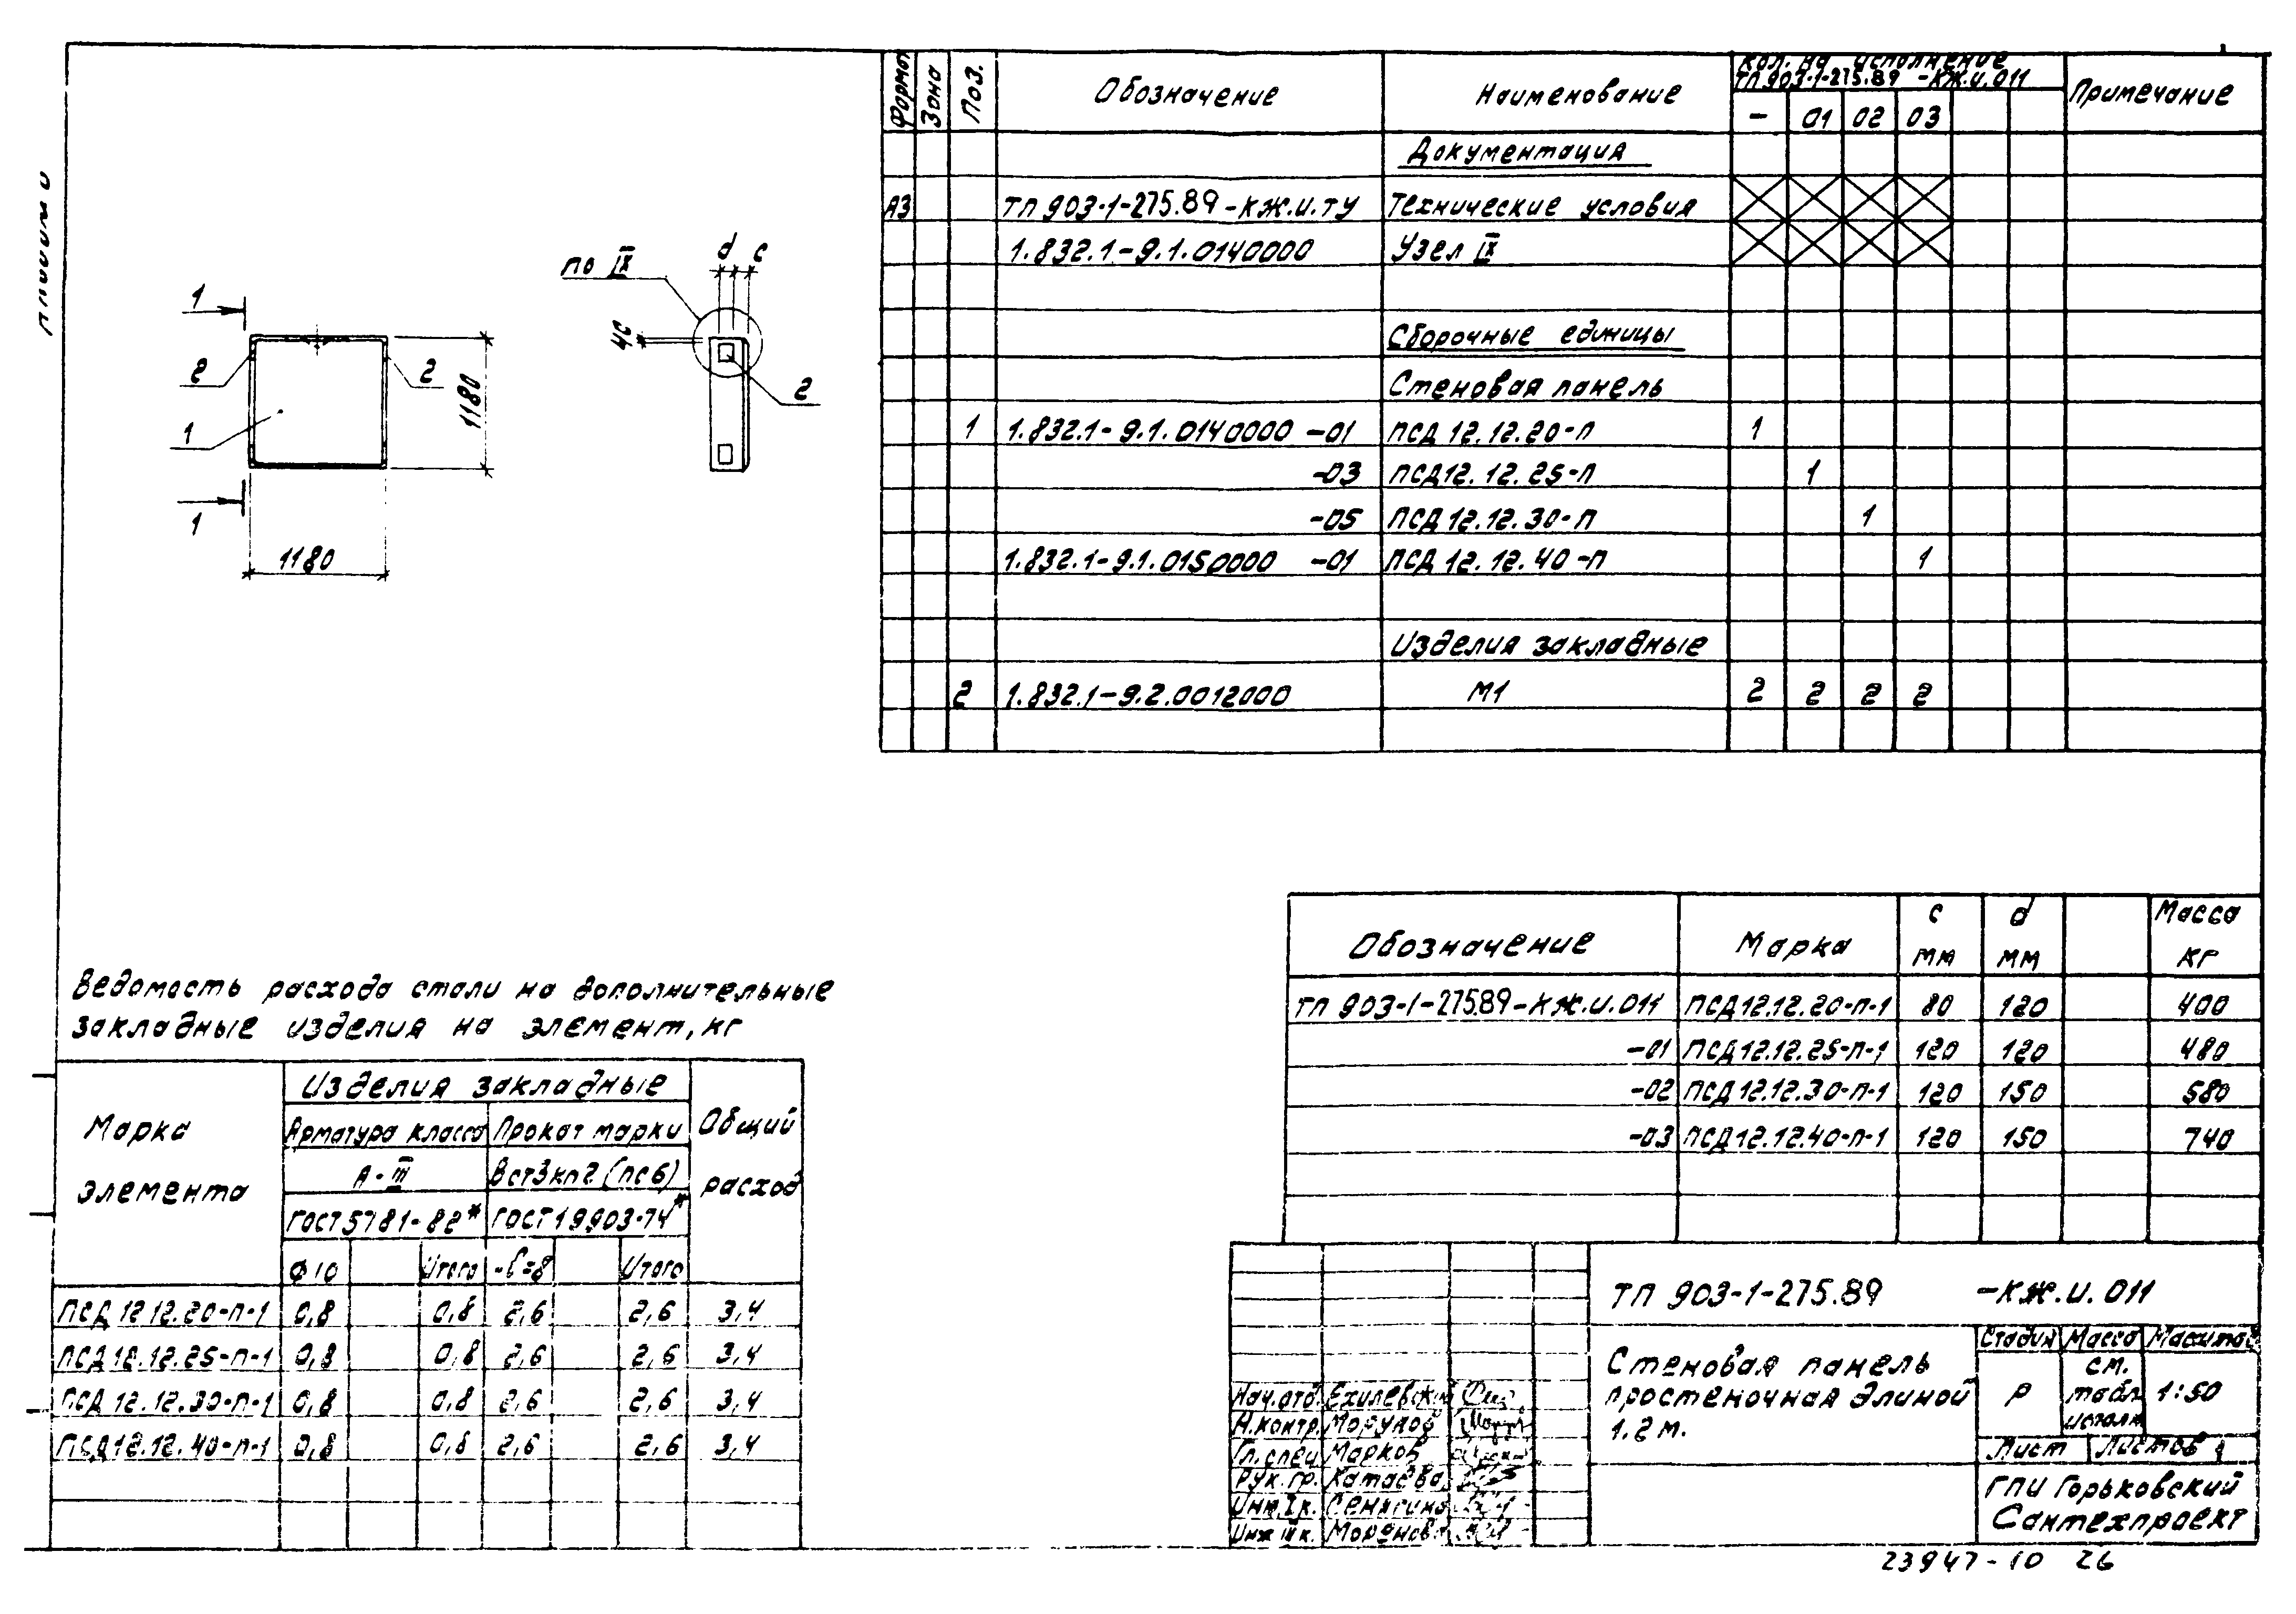 Альбом 0
1
2
2
1
1
1180
1180
по IX
d c
40
2
Формат Зона Поз. Обозначение Наименование Кол. на исполнение ТП 903-1-275.89 -КЖ.И.011 Примечание
- 01 02 03
Документация
А3 ТП 903-1-275.89-КЖ.И.ТУ Технические условия
1.832.1-9.1.0140000 Узел IX
Сборочные единицы
Стеновая панель
1 1.832.1-9.1.0140000 -01 ПСД 12.12.20-П 1
-03 ПСД12.12.25-П 1
-05 ПСД12.12.30-П 1
1.832.1-9.1.0150000 -01 ПСД 12.12.40-П 1
Изделия закладные
2 1.832.1-9.2.0012000 М1 2 2 2 2
Обозначение Марка c мм d мм Масса кг
ТП 903-1-275.89-КЖ.И.011 ПСД12.12.20-П-1 80 120 400
-01 ПСД12.12.25-П-1 120 120 480
-02 ПСД12.12.30-П-1 120 150 580
-03 ПСД12.12.40-П-1 120 150 740
Ведомость расхода стали на дополнительные
закладные изделия на элемент, кг
Марка элемента Изделия закладные Общий расход
Арматура класса Прокат марки
А-III ВСт3кп2 (пс6)
ГОСТ5781-82* ГОСТ19903-74*
Ф10 Итого -δ=8 Итого
ПСД 12.12.20-П-1 0,8 0,8 2,6 2,6 3,4
ПСД 12.12.25-П-1 0,8 0,8 2,6 2,6 3,4
ПСД 12.12.30-П-1 0,8 0,8 2,6 2,6 3,4
ПСД12.12.40-П-1 0,8 0,8 2,6 2,6 3,4
ТП 903-1-275.89 -КЖ.И.011
Стеновая панель
простеночная длиной
1.2 м.
Стадия Масса Масштаб
Р см. табл. исполн 1:50
Лист Листов 1
Нач.отд. Ехилевский
Н.контр. Морунов
Гл.спец Марков
Рук.гр. Катаева
Инж.Iк.
Инж IIк.
ГПИ Горьковский
Сантехпроект
23947-10 26